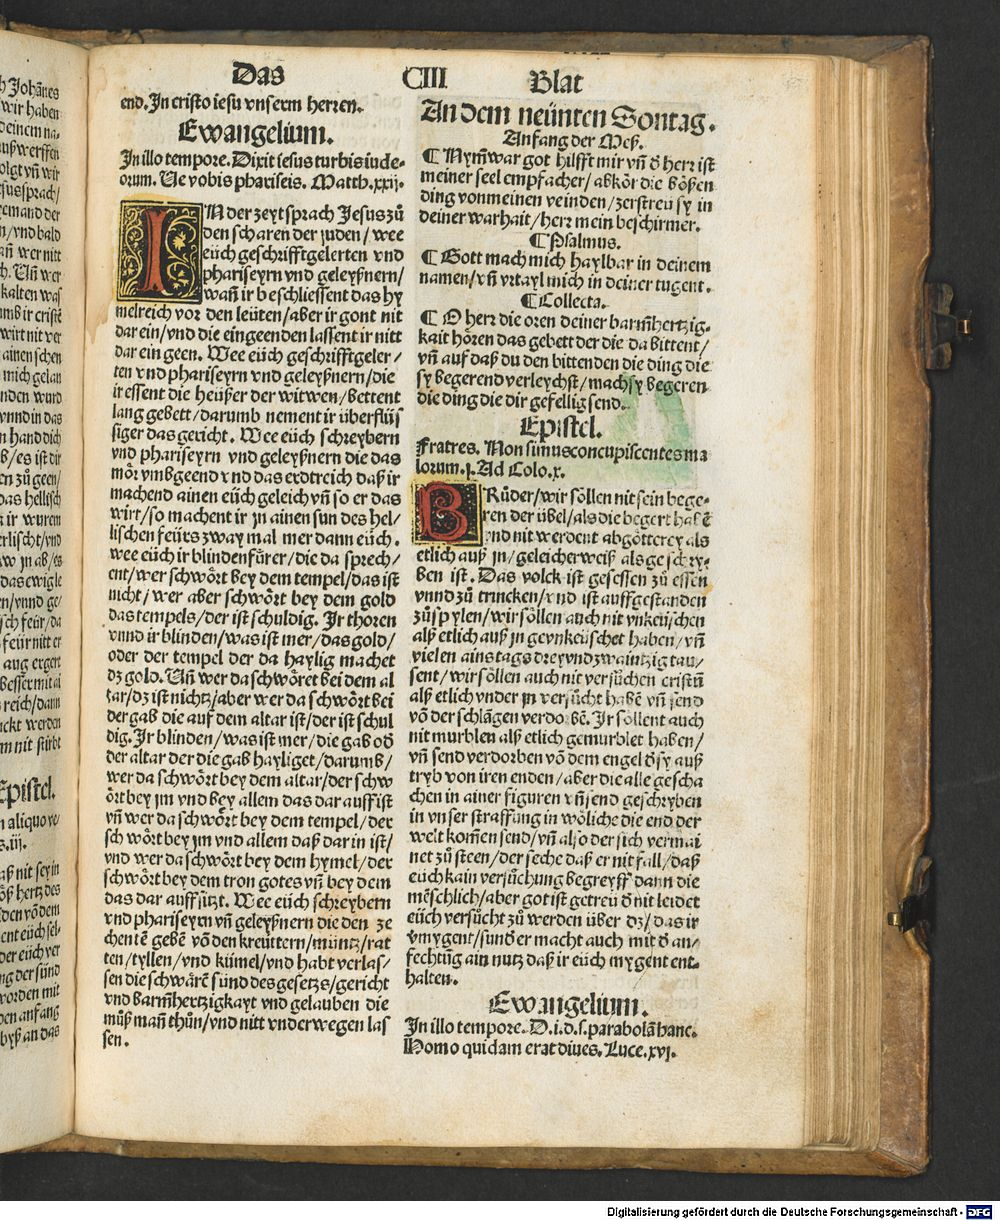 h Johānes
wir haben
deinem na-
uß werffen
olgt vñ wir
esus sprach/
emand der
n/vnd bald
añ wer nitt
ch. Vñ wer
kalten was
umb ir cristē
wirt nit ver
ainen schen
mich gelau
nden wurd
vnnd in das
n hand dich
b/es ist dir
en zů geen/
das hellisch
ir wurem
erlischt/vnd
in ab/es
das ewig le
en/vnnd ge/
sch feür/da
feür nitt er
aug ergert
besser mit ai
reich/dann
uckt werden
m nit stirbt
Epistel.
n aliquo ve
s.iij.
aß nit sey in
öß hertz des
den vō dem
ent eüch sel-
der eüch ver
ng der sünd
worden mit
den anfang
byß an das
Das CIII Blat
end. In cristo iesu vnserm herren.
Ewangelium.
In illo tempore. Dixit iesus turbis iude-
orum. Ve vobis phariseis. Matth.xxij.
IN der zeyt sprach Jesus zů
den scharen der juden/wee
eüch geschrifftgelerten vnd
phariseyrn vnd geleyßnern/
wañ ir beschliessent das hy
melreich vor den leüten/aber ir gont nit
dar ein/vnd die eingeenden lassent ir nitt
dar ein geen. Wee eüch geschrifftgeler/
ten vnd phariseyrn vnd geleyßnern/die
ir essent die heüßer der witwen/bettent
lang gebett/darumb nement ir überflüs
siger das gericht. Wee eüch schreybern
vnd phariseyrn vnd geleyßnern die das
mör vmbgeend vnd das erdtreich daß ir
machend ainen eüch geleich vñ so er das
wirt/so machent ir jn ainen sun des hel-
lischen feürs zway mal mer dann eüch.
wee eüch ir blinden fürer/die da sprech-
ent/wer schwört bey dem tempel/das ist
nicht/wer aber schwört bey dem gold
das tempels/der ist schuldig. Ir thoren
vnnd ir blinden/was ist mer/das gold/
oder der tempel der da haylig machet
dz gold. Vñ wer da schwöret bei dem al
tar/dz ist nichtz/aber wer da schwört bei
der gab die auf dem altar ist/der ist schul
dig. Ir blinden/was ist mer/die gab od
der altar der die gab hayliget/darumb/
wer da schwört bey dem altar/der schw
ört bey jm vnd bey allem das dar auff ist
vñ wer da schwört bey dem tempel/der
schwört bey jm vnd allem daß dar in ist/
vnd wer da schwört bey dem hymel/der
schwört bey dem tron gotes vñ bey dem
das dar auff sitzt. Wee eüch schreybern
vnd phariseyrn vñ geleyßnern die den ze
chentē gebē vō den kreüttern/müntz/rat
ten/tyllen/vnd kümel/vnd habt verlas/
sen die schwärē sünd des gesetzs/gericht
vnd barmhertzigkayt vnd gelauben die
můß mañ thůn/vnd nitt vnderwegen las
sen.
An dem neünten Sontag.
Anfang der Meß.
¶ Nym̄war got hilfft mir vñ d herr ist
meiner seel empfacher/abkör die bößen
ding von meinen veinden/zerstreu sy in
deiner warhait/herr mein beschirmer.
¶ Psalmus.
¶ Gott mach mich haylbar in deinem
namen/vñ vrtayl mich in deiner tugent.
¶ Collecta.
¶ O herr die oren deiner barm̄hertzig-
kait hören das gebett der die da bittent/
vñ auf daß du den bittenden die ding die
sy begerend verleychst/mach sy begeren
die ding die dir gefellig send.
Epistel.
Fratres. Non simus concupiscentes ma
lorum.j. Ad Colo.x.
BRůder/wir söllen nit sein bege-
ren der übel/als die begert habē
vnd nit werdent abgötterey als
etlich auß jn/geleicherweiß als geschry-
ben ist. Das volck ist gesessen zů essen
vnnd zů trincken/vnd ist auffgestanden
zů spylen/wir söllen auch nit vnkeüschen
alß etlich auß jn geunkeüschet haben/vñ
vielen ains tags drey vnd zwaintzig tau/
sent/wir söllen auch nit versůchen cristū
alß etlich vnder jn versůcht habē vñ send
vō der schlāgen verdorbē. Ir söllent auch
nit murblen alß etlich gemurblet haben/
vñ send verdorben vō dem engel d sy auß
tryb von iren enden/aber die alle gescha
chen in ainer figuren vñ send geschryben
in vnser straffung in wöliche die end der
welt kom̄en send/vñ also der sich vermai
net zů steen/der seche daß er nit fall/daß
eüch kain versůchung begreyff dann die
mēschlich/aber got ist getreü d nit leidet
eüch versůcht zů werden über dz/das ir
vmygent/sunder macht auch mit d an/
fechtūg ain nutz daß ir eüch mygent ent-
halten.
Ewangelium.
In illo tempore. D.i.d.s. parabolā hanc.
Homo quidam erat diues. Luce.xvj.
Digitalisierung gefördert durch die Deutsche Forschungsgemeinschaft - DFG